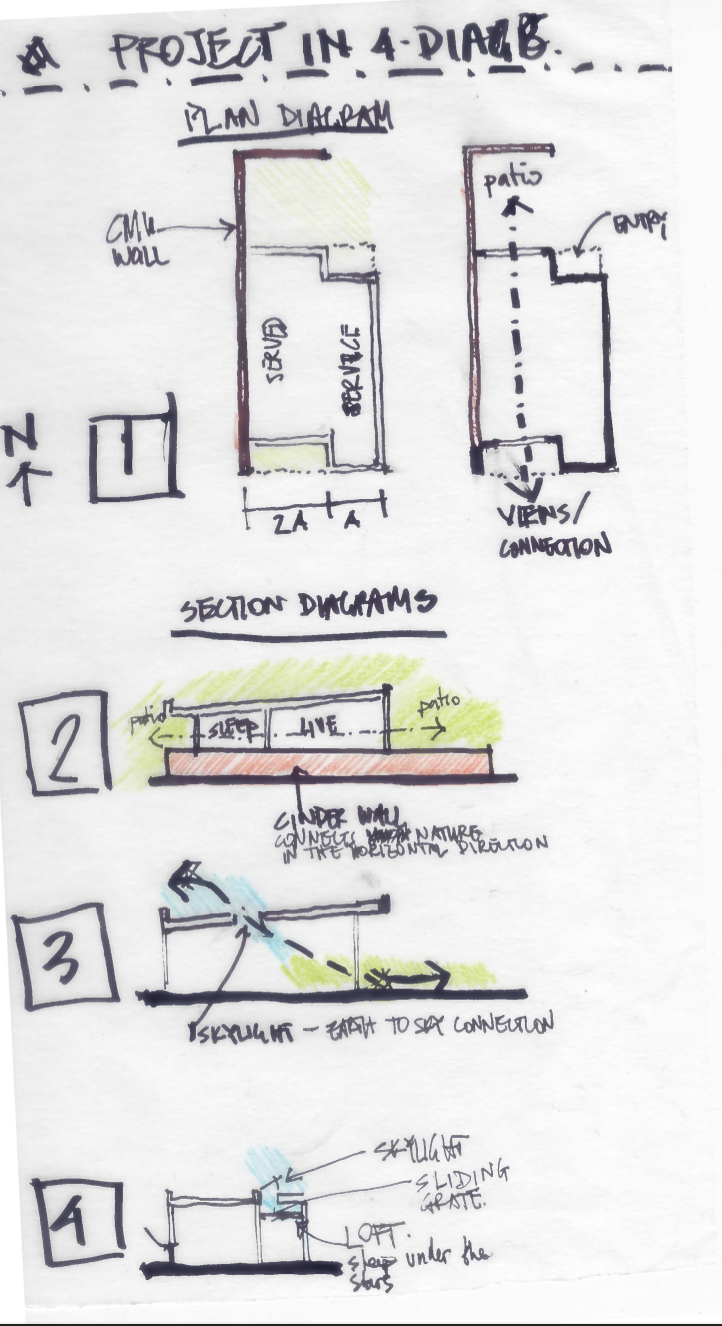 PROJECT IN 4-DIAG.
PLAN DIAGRAM
CMU
WALL
SERVED
SERVICE
2A
A
patio
ENTRY
VIEWS/
CONNECTION
N
1
SECTION DIAGRAMS
2
patio
SLEEP
LIVE
patio
CINDER WALL
CONNECTS NATURE
IN THE HORIZONTAL DIRECTION
3
SKYLIGHT - EARTH TO SKY CONNECTION
4
SKYLIGHT
SLIDING
GRATE.
LOFT.
sleep under the
stars